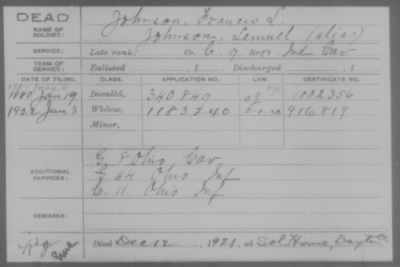 DEAD
NAME OF SOLDIER:
Johnson, Francis L.
Johnson, Lemall (alias)
SERVICE:
Late rank, Co. C. 9 Reg't Ind. Cav
TERM OF SERVICE:
Enlisted , 1 Discharged , 1
DATE OF FILING. CLASS. APPLICATION NO. LAW. CERTIFICATE NO.
1880 Jan 19 Invalid, 340849 1002356
1922 Jan 3 Widow, 1183240 916819
Minor,
ADDITIONAL SERVICES:
G 8 Ohio Cav
G 44 Ohio Inf
C. 11 Ohio Inf
REMARKS:
Died Dec 12 1921, at Sol. Home, Dayton O